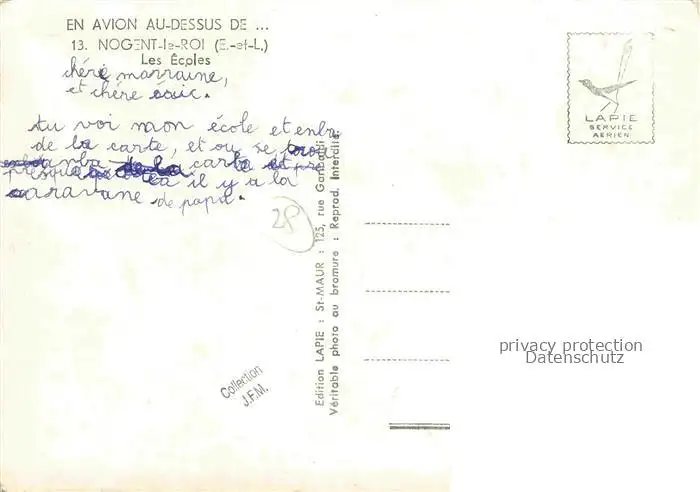 EN AVION AU-DESSUS DE ...
13. NOGENT-le-ROI (E.-et-L.)
Les Écoles
chère marraine,
et chère
tu voi mon école et
de la carte, et ou se
carte et
presque il y a la
caravane de papa.
28
LAPIE
SERVICE
AERIEN
Edition LAPIE : St-MAUR : 125, rue
Véritable photo au bromure : Reprod. Interdite.
Collection
J.F.M.
privacy protection
Datenschutz